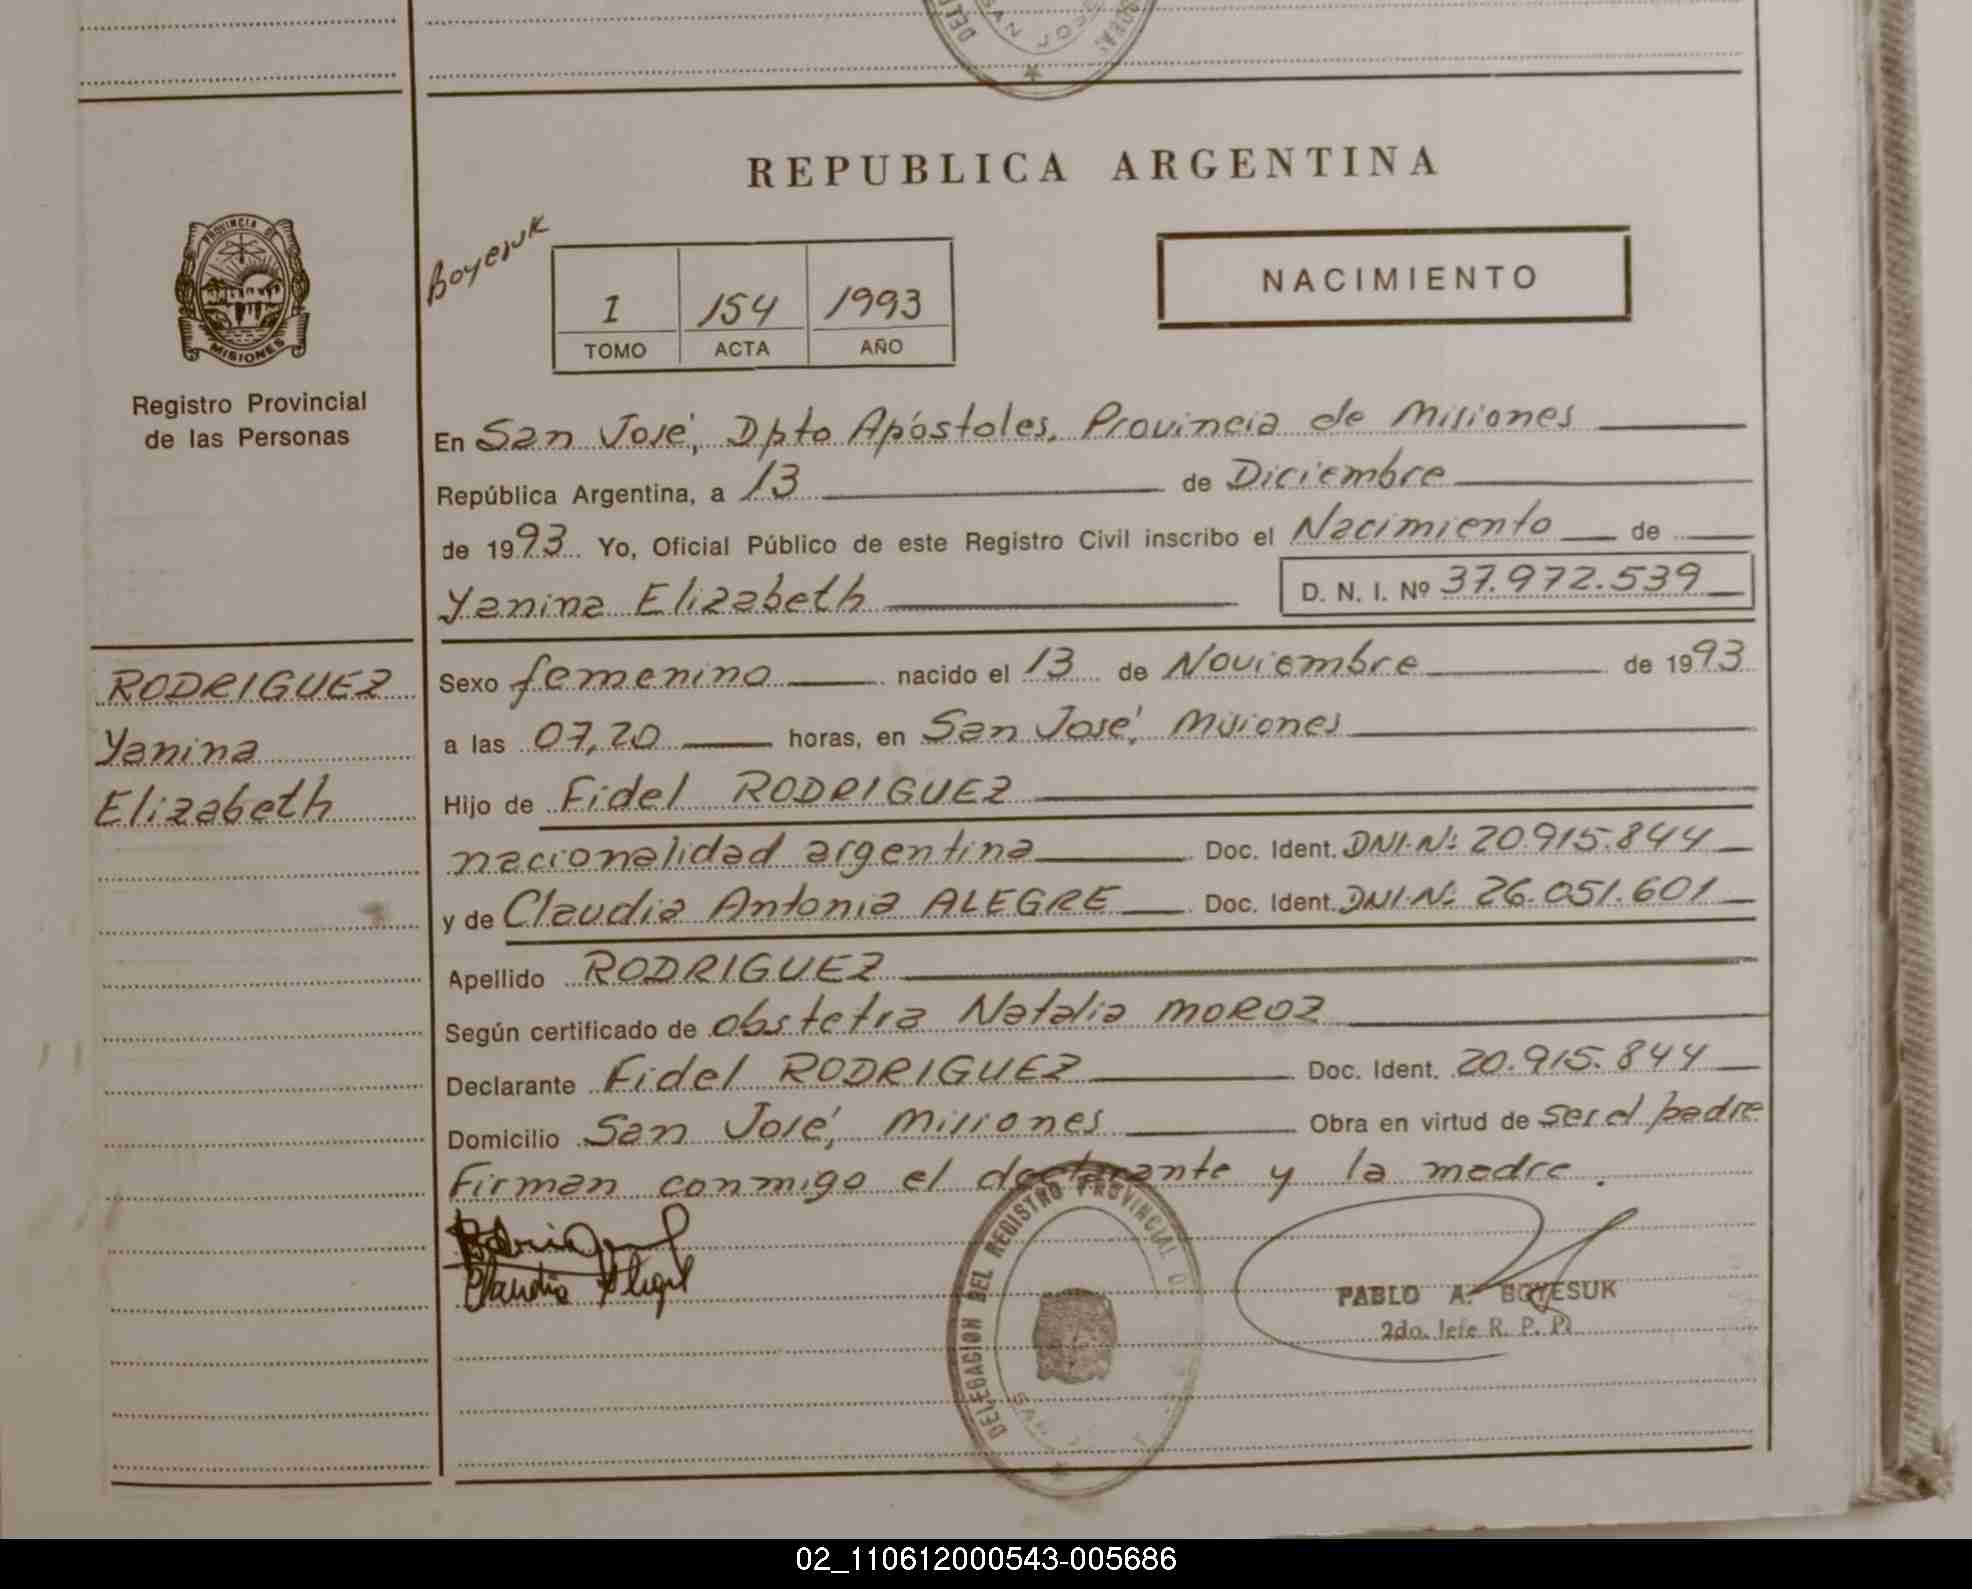 SAN JOSE
REPUBLICA ARGENTINA
PROVINCIA DE
MISIONES
Registro Provincial
de las Personas
Boyesuk
1 154 1993
TOMO ACTA AÑO
NACIMIENTO
En San José, Dpto Apóstoles, Provincia de Misiones
República Argentina, a 13 de Diciembre
de 1993 Yo, Oficial Público de este Registro Civil inscribo el Nacimiento de
Yanina Elizabeth D. N. I. Nº 37.972.539
RODRIGUEZ
Yanina
Elizabeth
Sexo femenino nacido el 13 de Noviembre de 1993
a las 07,20 horas, en San José, Misiones
Hijo de Fidel RODRIGUEZ
nacionalidad argentina Doc. Ident. DNI-Nº 20.915.844
y de Claudia Antonia ALEGRE Doc. Ident. DNI-Nº 26.051.601
Apellido RODRIGUEZ
Según certificado de obstetra Natalia MOROZ
Declarante Fidel RODRIGUEZ Doc. Ident. 20.915.844
Domicilio San José, Misiones Obra en virtud de ser el padre
Firman conmigo el declarante y la madre.
Claudia Alegre
DELEGACION DEL REGISTRO PROVINCIAL
PABLO A. BOYESUK
2do. Jefe R. P. P.
02_110612000543-005686